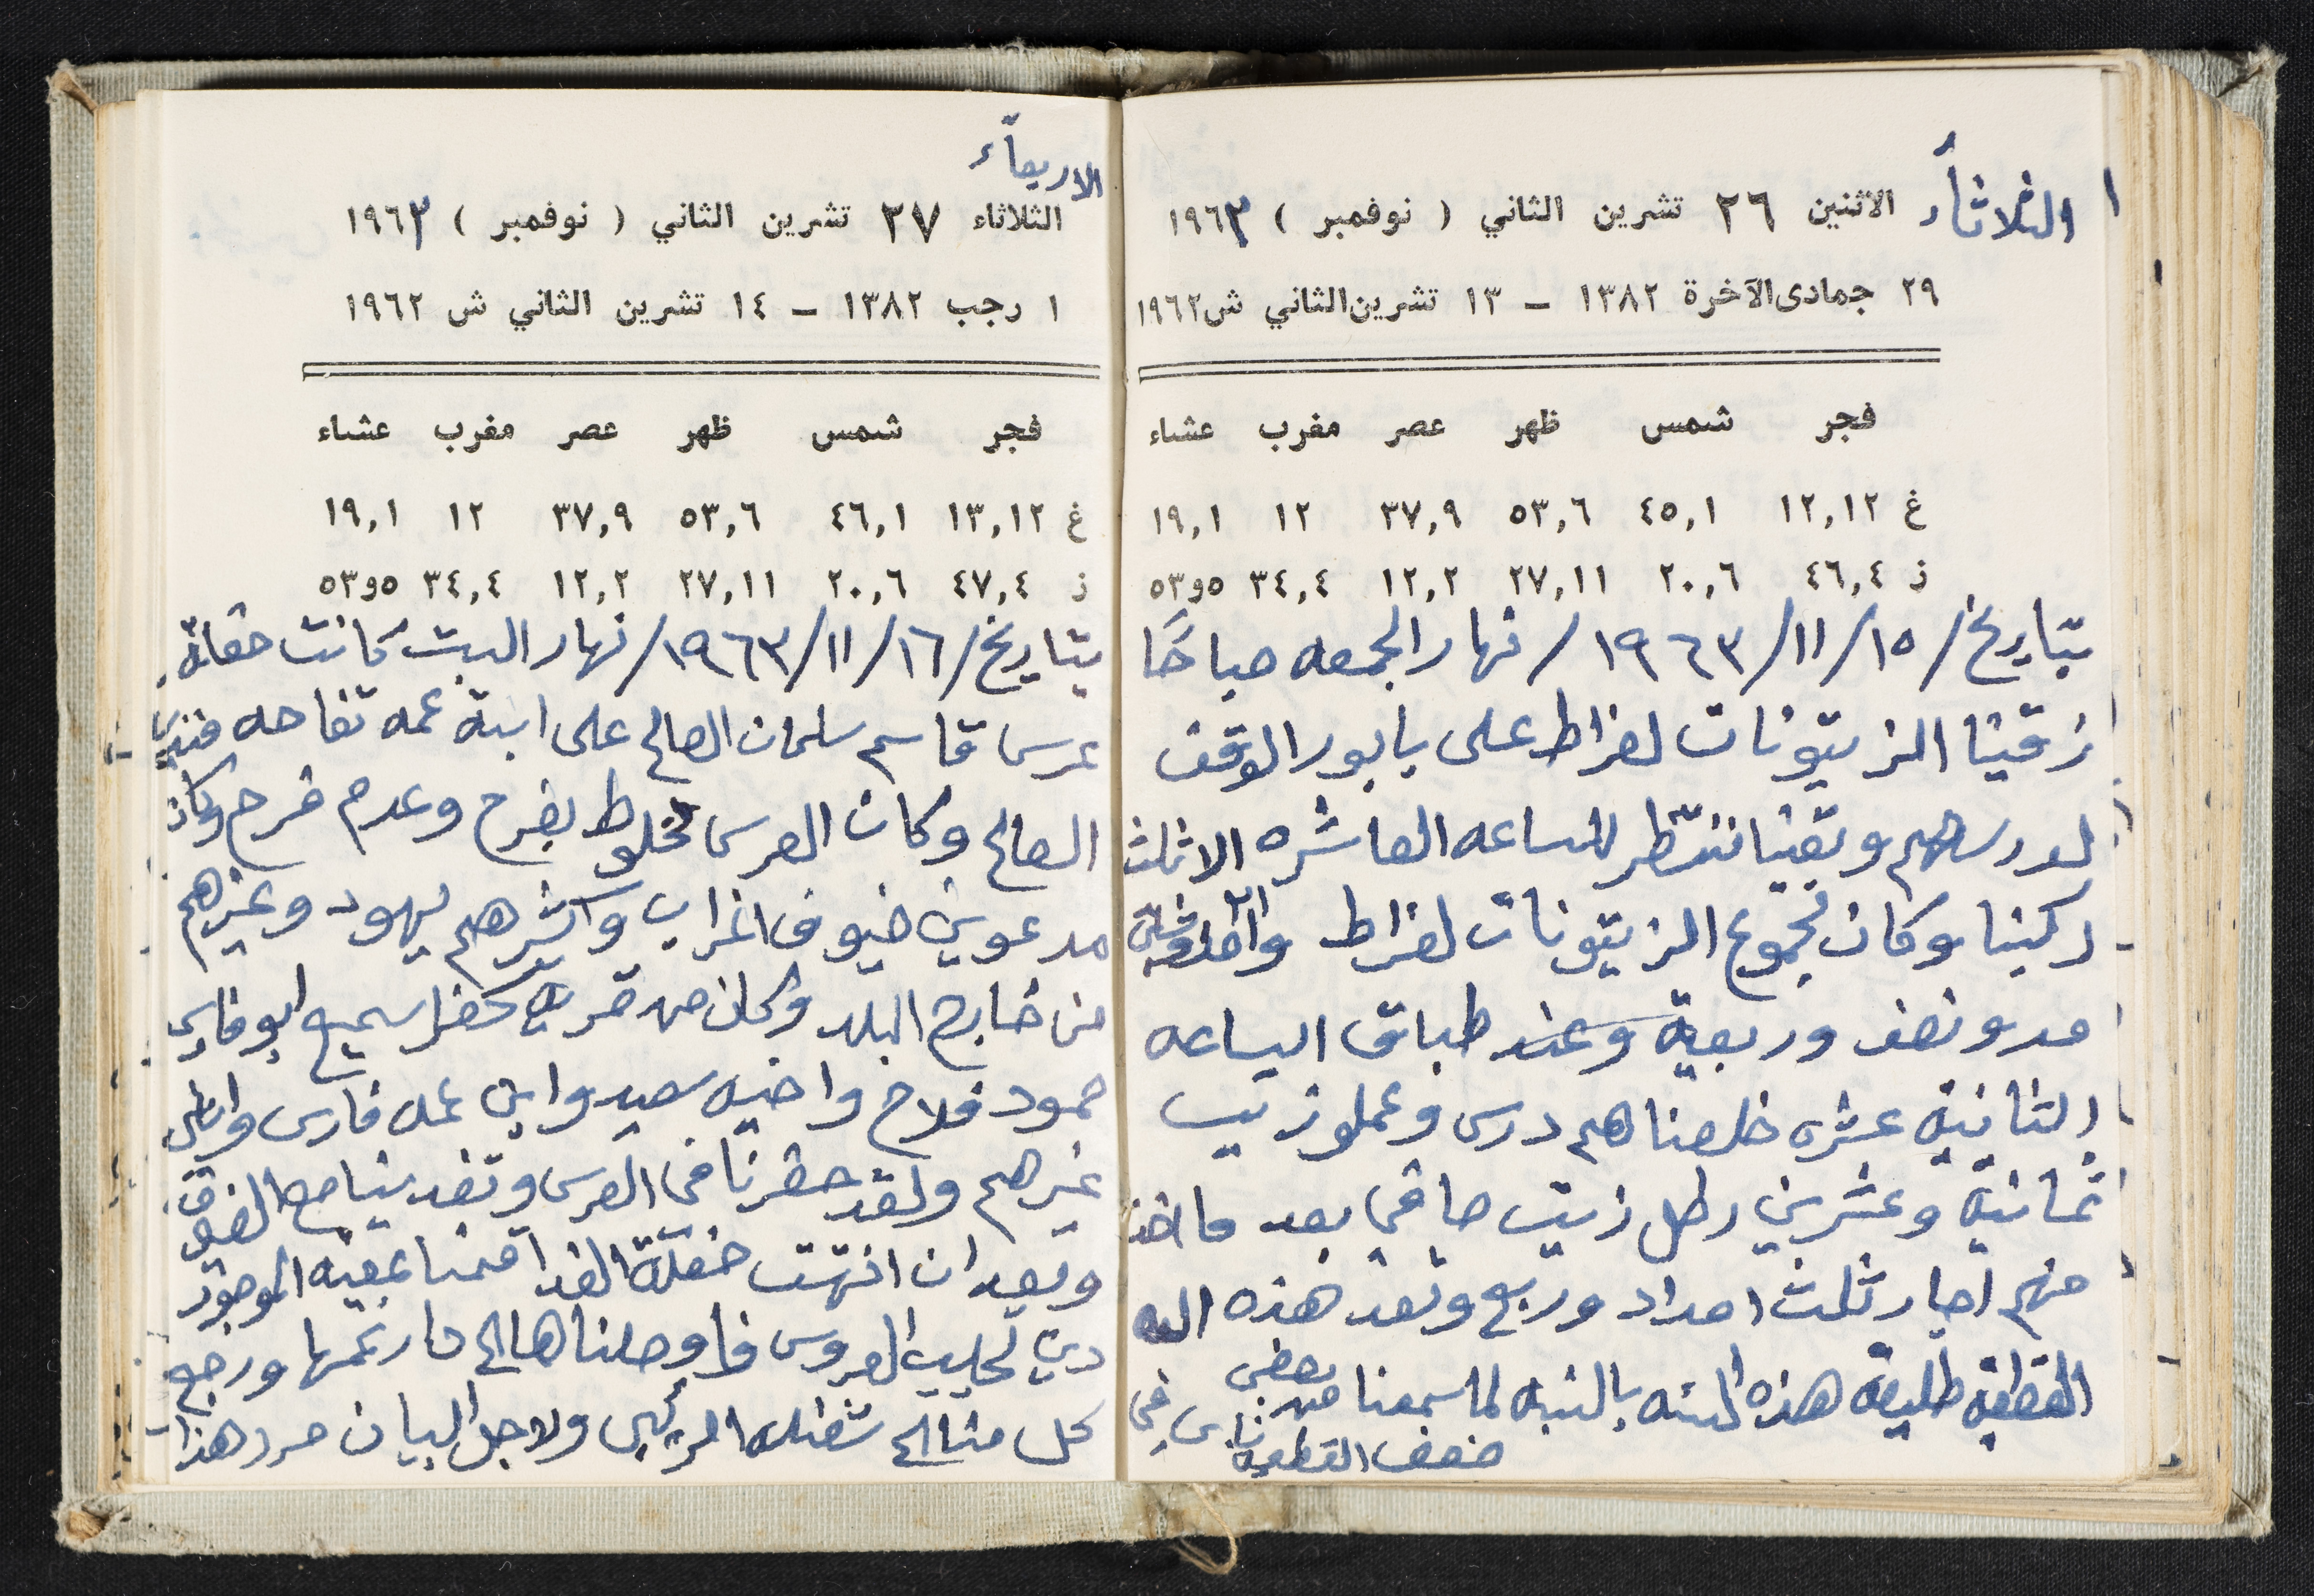 الثلاثاء
الاثنين ٢٦ تشرين الثاني ( نوفمبر ) ١٩٦٣
٢٩ جمادى الآخرة ١٣٨٢ – ١٣ تشرين الثاني ش ١٩٦٢
فجر شمس ظهر عصر مغرب عشاء
غ ١٢,١٢ ٤٥,١ ٥٣,٦ ٣٧,٩ ١٢ ١٩,١
ز ٤٦,٤ ٢٠,٦ ٢٧,١١ ١٢,٢ ٣٤,٤ ٥٣و٥
بتاريخ /١٥/١١/١٩٦٣/ نهار الجمعه صباحًا
زقينا الزيتونات لفراط على بابور الوقف
لدرسهم وبقينا ننتظر للساعه العاشره الا ثلث
ركبنا وكان مجموع الزيتونات لفراط
مد ونصف وربعية وعند طباق الساعه
الثانية عشره خلصناهم درس وعملو زيت
ثمانية وعشرين رطل زيت صافي بعد ما اخذ
منهم اجار ثلث امداد وربع وتعد هذه
القطفه طليعة هذه السنه بالنسبه لما سمعنا من بعض ناس في
ضعف القطوف
الاربعاء
الثلاثاء ٢٧ تشرين الثاني ( نوفمبر ) ١٩٦٣
١ رجب ١٣٨٢ – ١٤ تشرين الثاني ش ١٩٦٢
فجر شمس ظهر عصر مغرب عشاء
غ ١٣,١٢ ٤٦,١ ٥٣,٦ ٣٧,٩ ١٢ ١٩,١
ز ٤٧,٤ ٢٠,٦ ٢٧,١١ ١٢,٢ ٣٤,٤ ٥٣و٥
بتاريخ /١٦/١١/١٩٦٣/ نهار السبت كانت حفلة
عرس قاسم سلمان الصالح على ابنة عمه تفاحه فندي
الصالح وكان العرس مخلوط بفرح وعدم فرح وكان
مدعوين ضيوف اغراب واكثرهم يهود وغيرهم
من خارج البلد وكان من قرية كفر سميع ابو فارس
حمود فلاح واخيه سعيد وابن عمه فارس
غيرهم ولقد حضرنا في العرس وتغدينا مع الضيوف
وبعد ان انتهت حفلة الغدا قمنا بمعيه الموجود
دين لجليب العروس فاوصلناها الى دار عمها ورجع
كل منا الى شغله الرئيسي ولاجل البيان حرر هذا